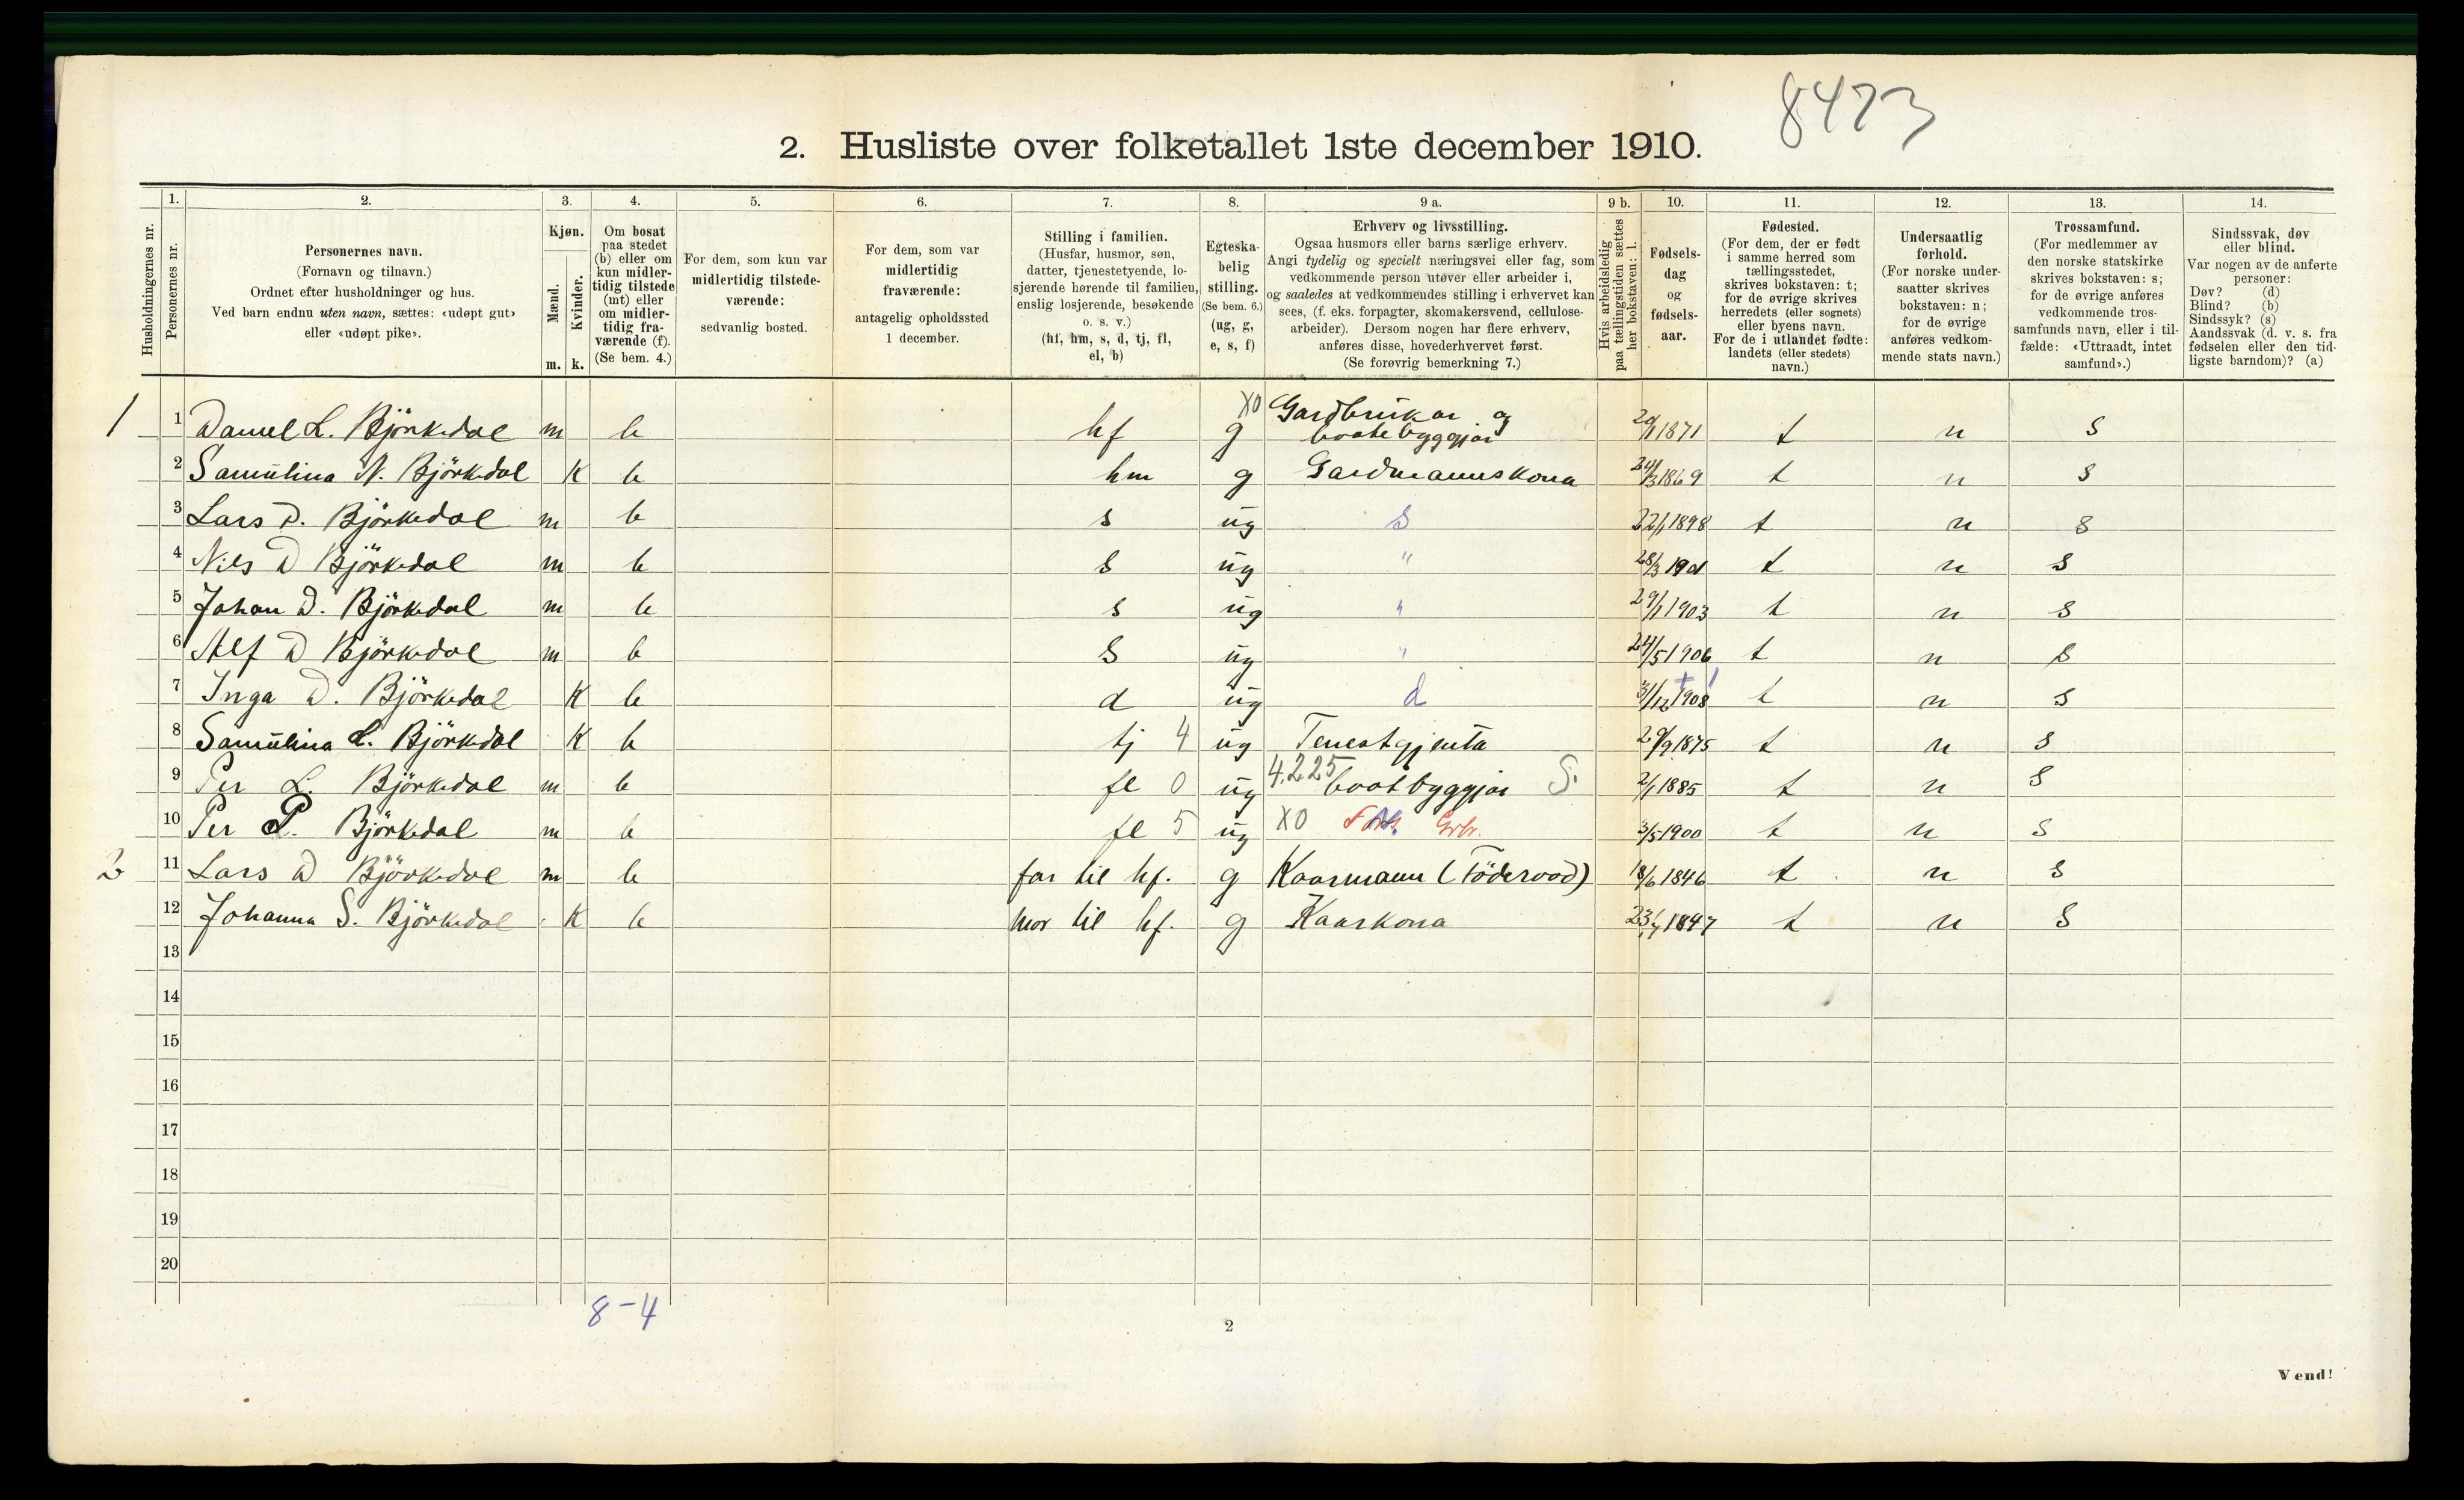 8473
2. Husliste over folketallet 1ste december 1910.
Husholdningernes nr.
1. Personernes nr.
2. Personernes navn.
(Fornavn og tilnavn.)
Ordnet efter husholdninger og hus.
Ved barn endnu uten navn, sættes: «udøpt gut»
eller «udøpt pike».
3. Kjøn.
Mænd. m.
Kvinder. k.
4. Om bosat
paa stedet
(b) eller om
kun midler-
tidig tilstede
(mt) eller
om midler-
tidig fra-
værende (f).
(Se bem. 4.)
5. For dem, som kun var
midlertidig tilstede-
værende:
sedvanlig bosted.
6. For dem, som var
midlertidig
fraværende:
antagelig opholdssted
1 december.
7. Stilling i familien.
(Husfar, husmor, søn,
datter, tjenestetyende, lo-
sjerende hørende til familien,
enslig losjerende, besøkende
o. s. v.)
(hf, hm, s, d, tj, fl,
el, b)
8. Egteska-
belig
stilling.
(Se bem. 6.)
(ug, g,
e, s, f)
9 a. Erhverv og livsstilling.
Ogsaa husmors eller barns særlige erhverv.
Angi tydelig og specielt næringsvei eller fag, som
vedkommende person utøver eller arbeider i,
og saaledes at vedkommendes stilling i erhvervet kan
sees, (f. eks. forpagter, skomakersvend, cellulose-
arbeider). Dersom nogen har flere erhverv,
anføres disse, hovederhvervet først.
(Se forøvrig bemerkning 7.)
9 b. Hvis arbeidsledig
paa tællingstiden sættes
her bokstaven: l.
10. Fødsels-
dag
og
fødsels-
aar.
11. Fødested.
(For dem, der er født
i samme herred som
tællingsstedet,
skrives bokstaven: t;
for de øvrige skrives
herredets (eller sognets)
eller byens navn.
For de i utlandet fødte:
landets (eller stedets)
navn.)
12. Undersaatlig
forhold.
(For norske under-
saatter skrives
bokstaven: n;
for de øvrige
anføres vedkom-
mende stats navn.)
13. Trossamfund.
(For medlemmer av
den norske statskirke
skrives bokstaven: s;
for de øvrige anføres
vedkommende tros-
samfunds navn, eller i til-
fælde: «Uttraadt, intet
samfund».)
14. Sindssvak, døv
eller blind.
Var nogen av de anførte
personer:
Døv? (d)
Blind? (b)
Sindssyk? (s)
Aandssvak (d. v. s. fra
fødselen eller den tid-
ligste barndom)? (a)
1 1 Daniel L. Björkedal m b hf g X0 Gardbrukar og
baatebyggjar 20/1 1871 t n s
2 Samulina N. Björkedal K b hm g Gardmannskona 24/3 1869 t n s
3 Lars D. Björkedal m b s ug S 22/1 1898 t n s
4 Nils D Björkedal m b s ug " 28/3 1901 t n s
5 Johan D. Björkedal m b s ug " 29/1 1903 t n s
6 Alf D Björkedal m b s ug " 24/5 1906 t n s
7 Inga D. Björkedal K b d ug d 31/12 1908 t n s
8 Samulina L. Björkedal K b tj 4 ug Tenestgjenta 29/9 1875 t n s
9 Per L. Björkedal m b fl 0 ug 4.225 baatbyggjar S. 2/1 1885 t n s
10 Per P. Björkedal m b fl 5 ug X0 Grbr. 3/5 1900 t n s
2 11 Lars D Björkedal m b far til hf. g Kaarmann (Föderaad) 18/6 1846 t n s
12 Johanna S. Björkedal K b mor til hf. g Kaarkona 1847 t n s
13
14
15
16
17
18
19
20
8-4
2
Vend!